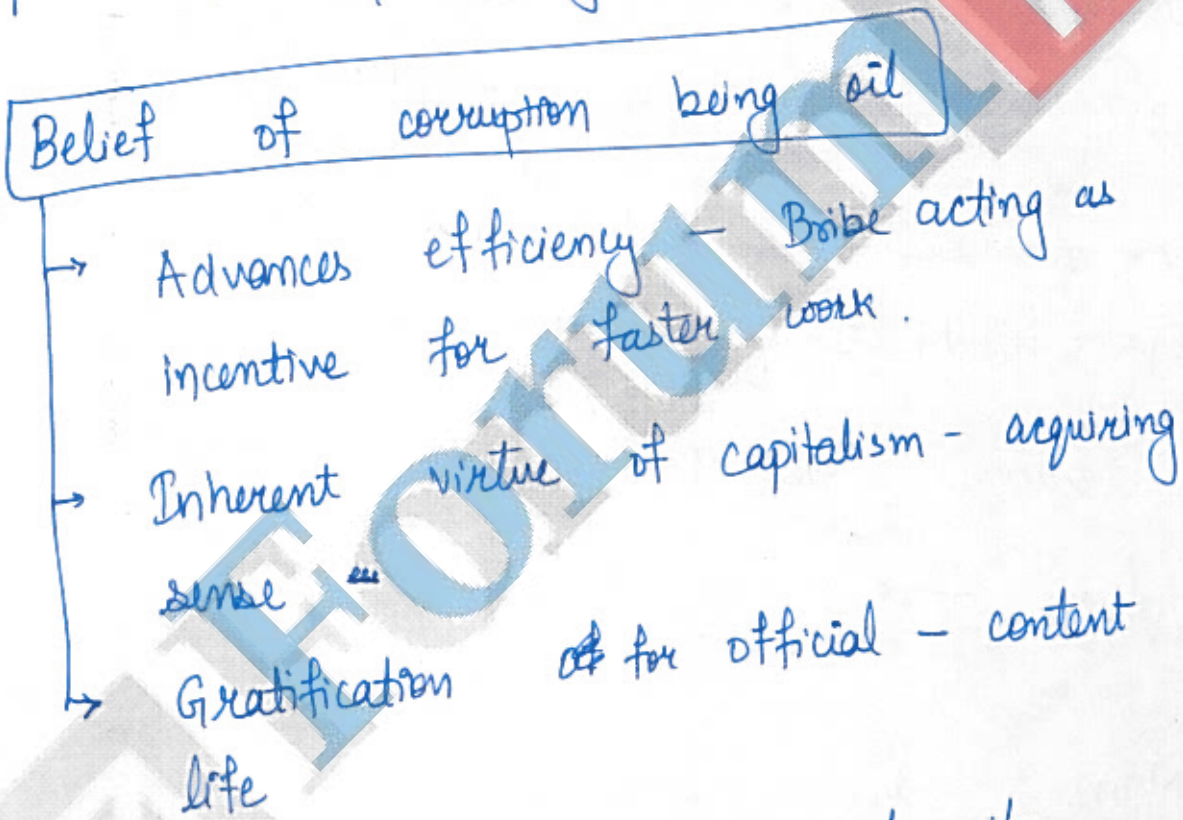 Belief of corruption being oil
→ Advances efficiency - Bribe acting as
incentive for faster work.
→ Inherent virtue of capitalism - acquiring
sense
→ Gratification for official - content
life
Forum